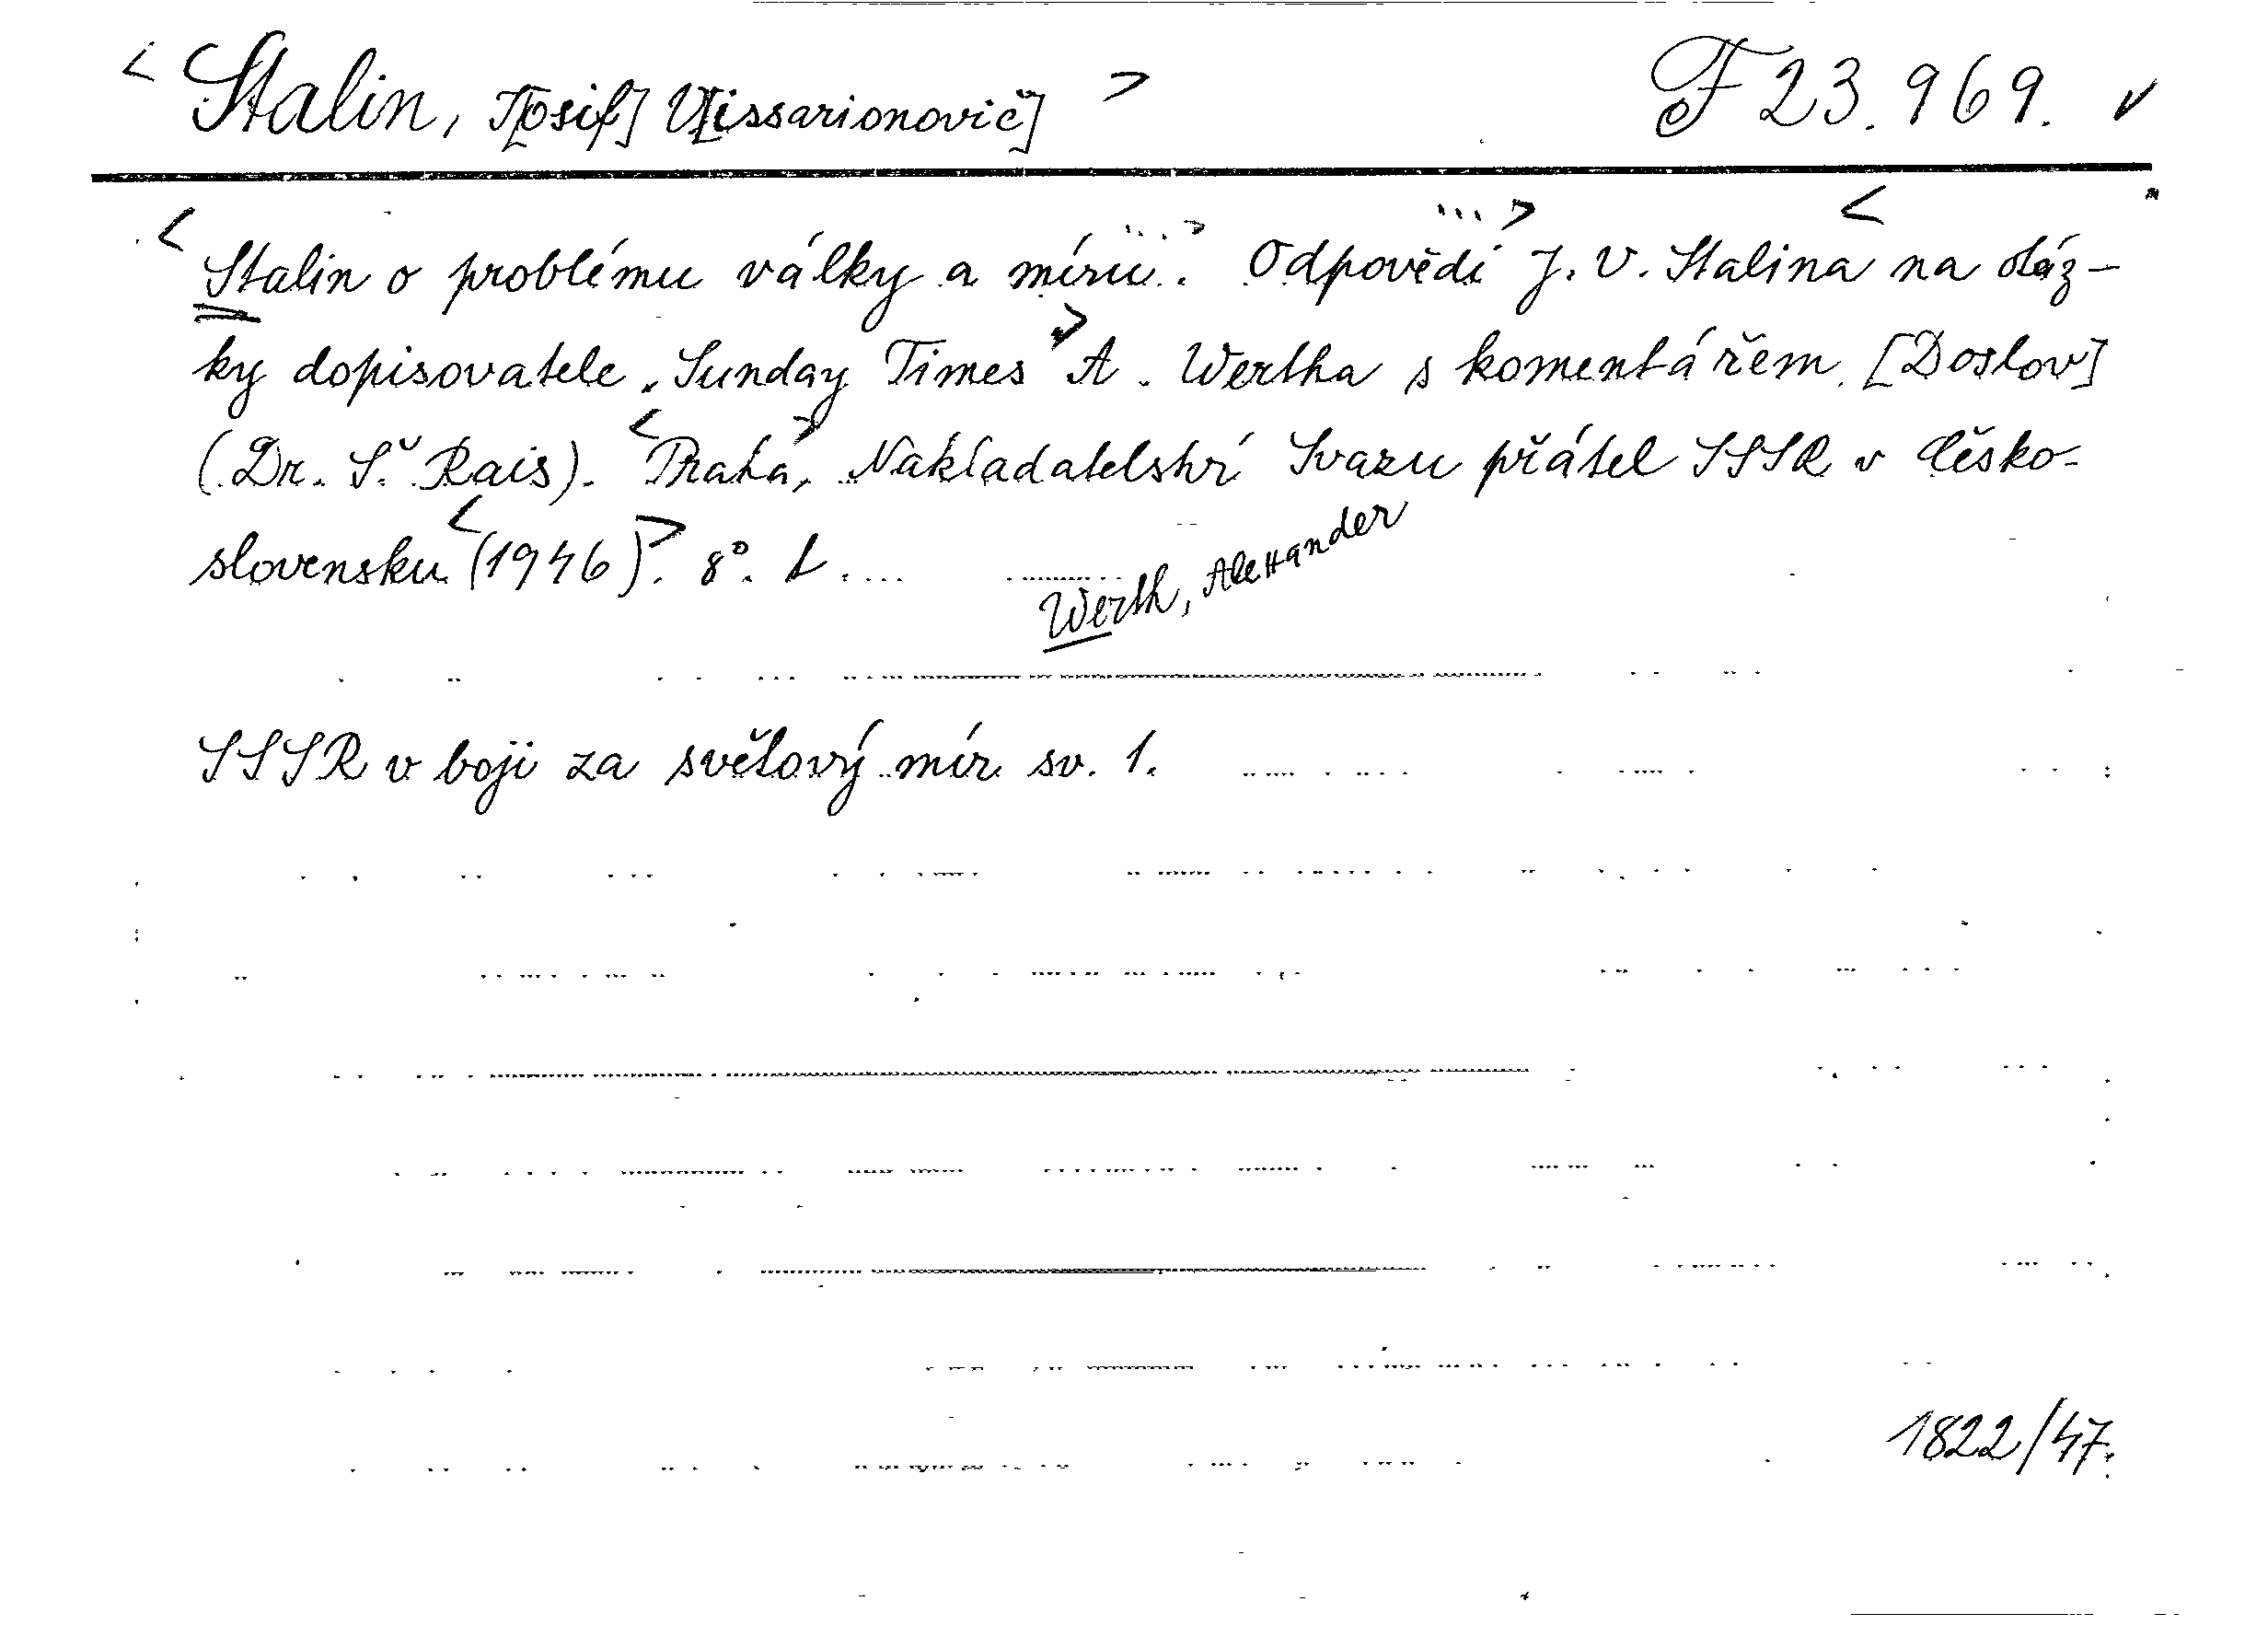 < Stalin, J[osif] V[issarionovič] > F 23.969. ✓
< Stalin o problému války a míru...> . Odpovědi ...> J. V. Stalina < na otáz-
ky dopisovatele „Sunday Times" > A. Wertha s komentářem. [Doslov]
(Dr. Š. Rais). < Praha >, Nakladatelství Svazu přátel SSSR v Česko-
slovensku < (1946) >. 8°.
Werth, Alexander
SSSR v boji za světový mír sv. 1.
1822/47.